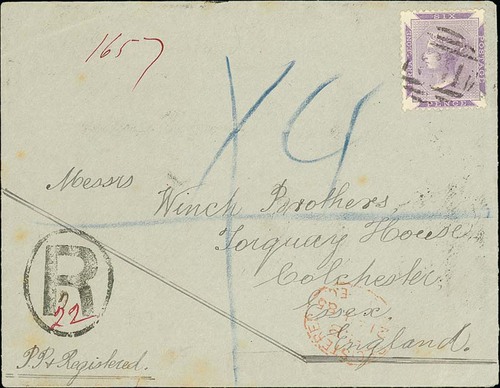 1657
SIX
POSTAGE
PENCE
X 4
Messrs
Winch Brothers
Torquay House
Colchester,
Essex,
England.
R
22
P.P. & Registered.